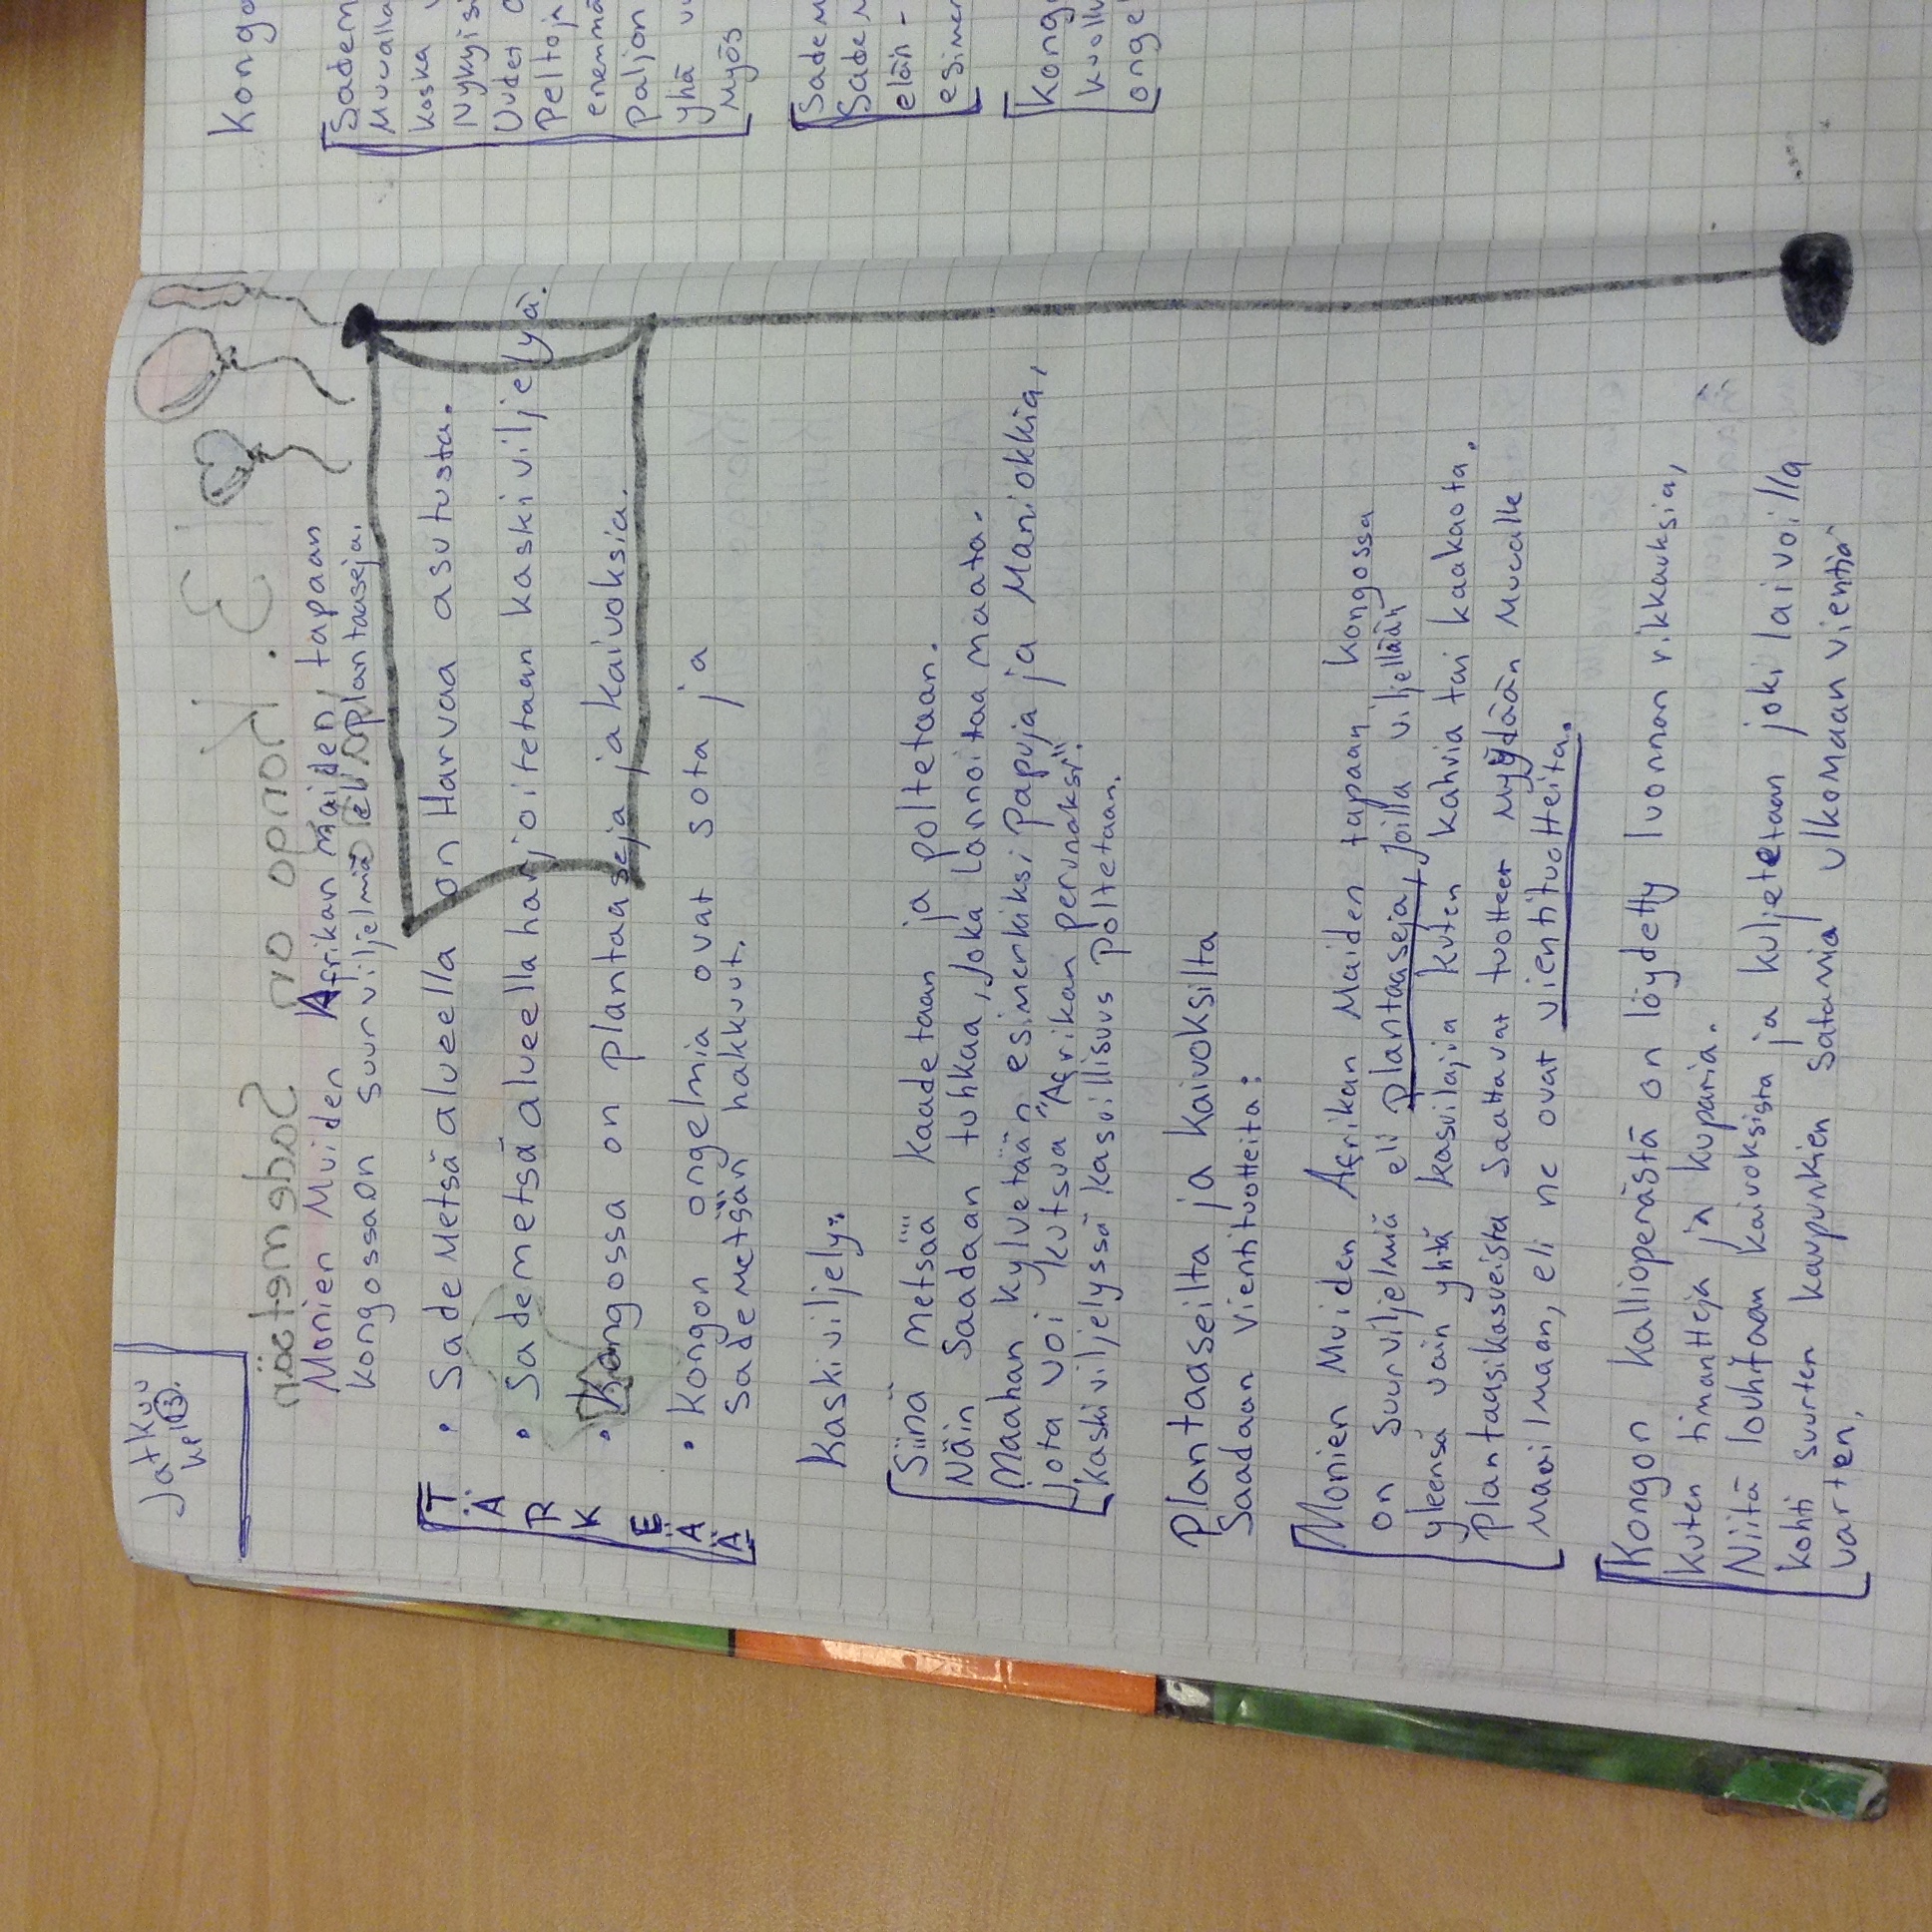 Jatkuu
kpl 13.
Monien Muiden Afrikan maiden tapaan
kongossaon suurviljelmiä eli plantaaseja.
T
Ä
R
K
E
Ä
Ä
• SadeMetsä alueella on Harvaa asutusta.
• Sademetsä alueella harjoitetaan kaskiviljelyä.
• Kongossa on plantaaseja ja kaivoksia.
• Kongon ongelmia ovat sota ja
sademetsän hakkuut.
Kaskiviljely:
Siinä metsää kaadetaan ja poltetaan.
Näin Saadaan tuhkaa, Joka Lannoitaa maata.
Maahan kylvetään esimerkiksi Papuja ja Maniokkia,
Jota voi kutsua "Afrikan perunaksi".
Kaskiviljelyssä kasvillisuus poltetaan.
Plantaaseilta ja kaivoksilta
Saadaan vientituotteita:
Monien Muiden Afrikan Maiden tapaan kongossa
on suurviljelmiä eli plantaaseja, joilla viljellään
yleensä vain yhtä kasvilajia kuten kahvia tai kaakaota.
Plantaasikasveista saattavat tuotteet myydään Muualle
maailmaan, eli ne ovat vientituotteita.
Kongon kallioperästä on löydetty luonnon rikkauksia,
kuten timantteja ja kuparia.
Niitä louhitaan kaivoksista ja kuljetetaan joki laivoilla
kohti suurten kaupunkien satamia ulkomaan vientiä
varten,
Kongo
Sadem
Muualla
Kaska
Nykyisi
Uudet
Peltoja
enemmä
Paljon
yhä
Myös
Sadem
Sade
eläin-
esimer
Kong
kuollu
onge